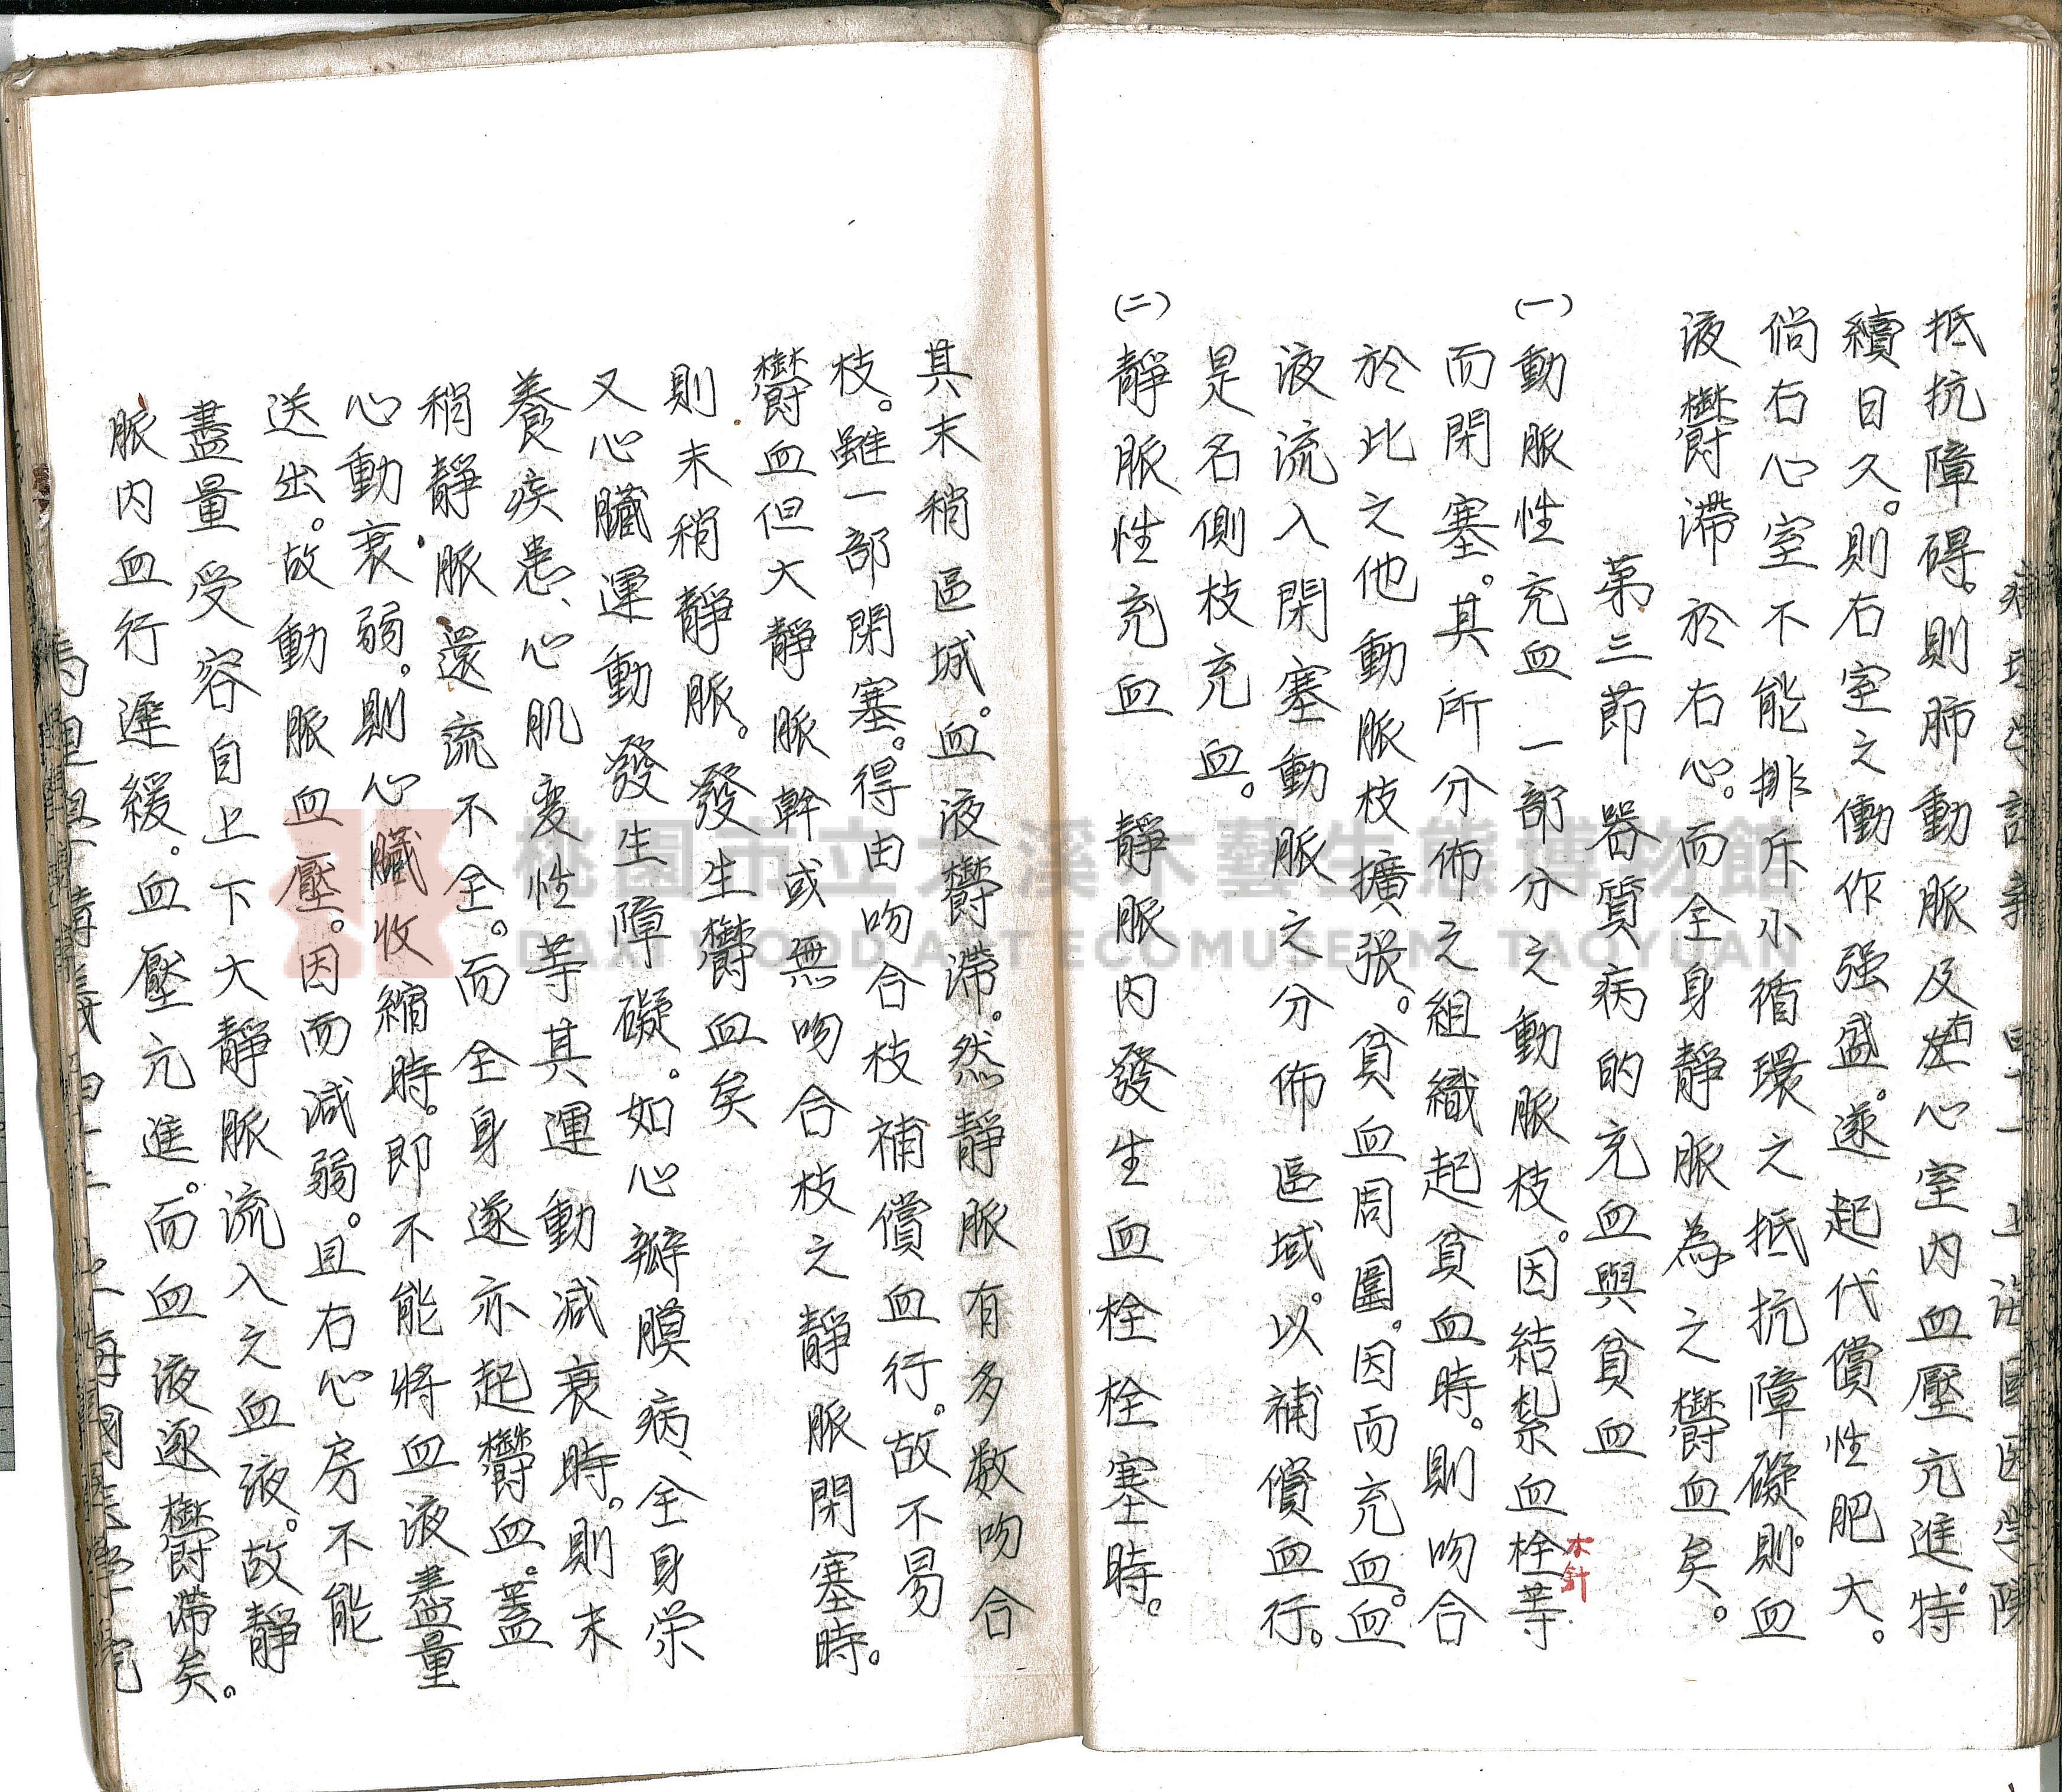 抵抗障碍。則肺動脈及右心室内血壓亢進。特
續日久。則右室之働作强盛。遂起代償性肥大。
倘右心室不能排斥小循環之抵抗障礙。則血
液欝滯於右心。而全身靜脈為之欝血矣。
第三節 器質病的充血與貧血
(一)動脈性充血 一部分之動脈枝。因結紮血栓等
木針
而閉塞。其所分佈之組織起貧血時。則吻合
於此之他動脈枝擴張。貧血周圍。因而充血。血
液流入閉塞動脈之分佈區域。以補償血行。
是名側枝充血。
(二)靜脈性充血 靜脈内發生血栓栓塞時。
其末稍區域。血液欝滯。然靜脈有多数吻合
枝。雖一部閉塞。得由吻合枝補償血行。故不易
欝血但大靜脈幹或無吻合枝之靜脈閉塞時。
則末稍靜脈。發生欝血矣
又心臟運動發生障礙。如心瓣膜病、全身栄
養疾患、心肌変性等其運動减衰時。則末
稍靜脈還流不全。而全身遂亦起欝血。蓋
心動衰弱。則心臟收縮時。即不能將血液盡量
送出。故動脈血壓。因而减弱。且右心房不能
盡量受容自上下大靜脈流入之血液。故靜
脈内血行遲緩。血壓亢進。而血液逐欝滯矣。
桃園市立大溪木藝生態博物館
DAXI WOOD ART ECOMUSEUM, TAOYUAN